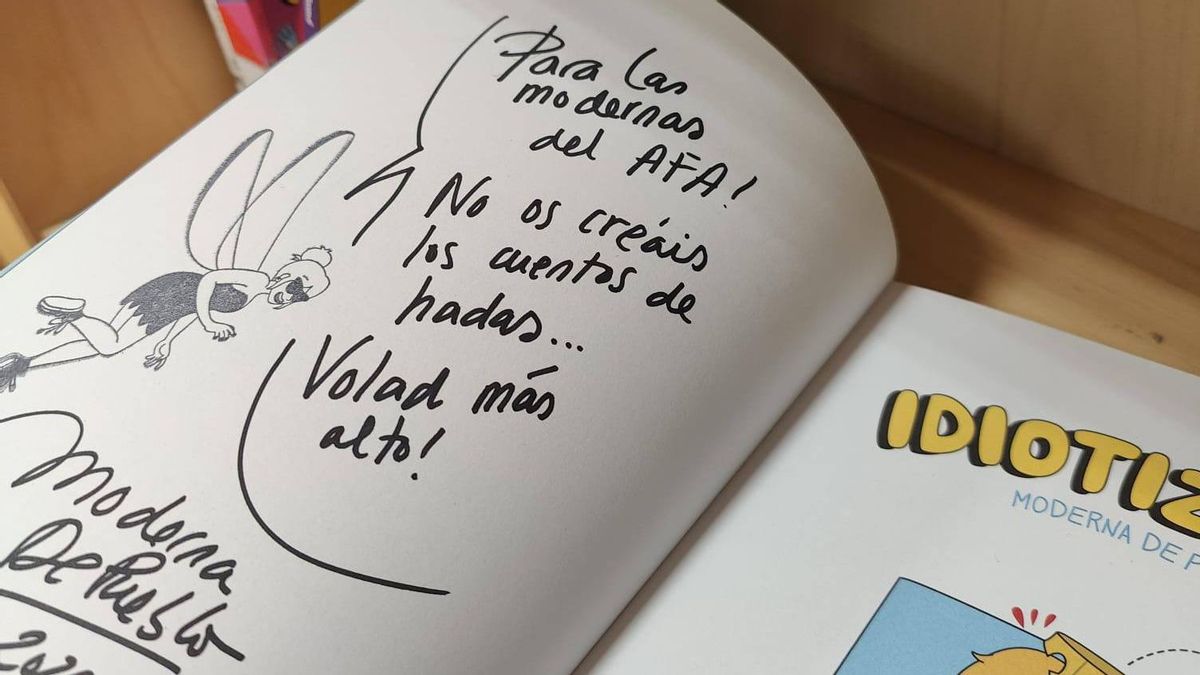 Para las
modernas
del AFA!
No os creáis
los cuentos de
hadas...
Volad más
alto!
Moderna
De Pueblo
IDIOTIZ
MODERNA DE P